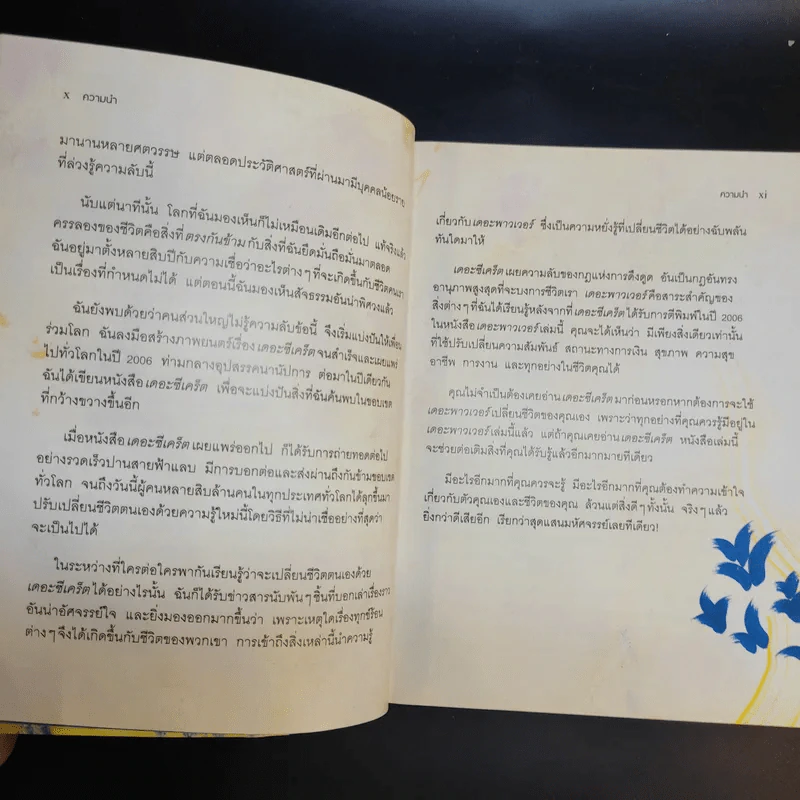 x ความนำ
มานานหลายศตวรรษ แต่ตลอดประวัติศาสตร์ที่ผ่านมามีบุคคลน้อยราย
ที่ล่วงรู้ความลับนี้
นับแต่นาทีนั้น โลกที่ฉันมองเห็นก็ไม่เหมือนเดิมอีกต่อไป แท้จริงแล้ว
ครรลองของชีวิตคือสิ่งที่ตรงกันข้ามกับสิ่งที่ฉันยึดมั่นถือมั่นมาตลอด
ฉันอยู่มาตั้งหลายสิบปีกับความเชื่อว่าอะไรต่างๆ ที่จะเกิดขึ้นกับชีวิตคนเรา
เป็นเรื่องที่กำหนดไม่ได้ แต่ตอนนี้ฉันมองเห็นสัจธรรมอันน่าพิศวงแล้ว
ฉันยังพบด้วยว่าคนส่วนใหญ่ไม่รู้ความลับข้อนี้ จึงเริ่มแบ่งปันให้เพื่อน
ร่วมโลก ฉันลงมือสร้างภาพยนตร์เรื่อง เดอะซีเคร็ต จนสำเร็จและเผยแพร่
ไปทั่วโลกในปี 2006 ท่ามกลางอุปสรรคนานัปการ ต่อมาในปีเดียวกัน
ฉันได้เขียนหนังสือ เดอะซีเคร็ต เพื่อจะแบ่งปันสิ่งที่ฉันค้นพบในขอบเขต
ที่กว้างขวางขึ้นอีก
เมื่อหนังสือ เดอะซีเคร็ต เผยแพร่ออกไป ก็ได้รับการถ่ายทอดต่อไป
อย่างรวดเร็วปานสายฟ้าแลบ มีการบอกต่อและส่งผ่านถึงกันข้ามขอบเขต
ทั่วโลก จนถึงวันนี้ผู้คนหลายสิบล้านคนในทุกประเทศทั่วโลกได้ลุกขึ้นมา
ปรับเปลี่ยนชีวิตตนเองด้วยความรู้ใหม่นี้โดยวิธีที่ไม่น่าเชื่ออย่างที่สุดว่า
จะเป็นไปได้
ในระหว่างที่ใครต่อใครพากันเรียนรู้ว่าจะเปลี่ยนชีวิตตนเองด้วย
เดอะซีเคร็ต ได้อย่างไรนั้น ฉันก็ได้รับข่าวสารนับพันๆ ชิ้นที่บอกเล่าเรื่องราว
อันน่าอัศจรรย์ใจ และยิ่งมองออกมากขึ้นว่า เพราะเหตุใดเรื่องทุกข์ร้อน
ต่างๆ จึงได้เกิดขึ้นกับชีวิตของพวกเขา การเข้าถึงสิ่งเหล่านี้นำความรู้
ความนำ xi
เกี่ยวกับ เดอะพาวเวอร์ ซึ่งเป็นความหยั่งรู้ที่เปลี่ยนชีวิตได้อย่างฉับพลัน
ทันใดมาให้
เดอะซีเคร็ต เผยความลับของกฎแห่งการดึงดูด อันเป็นกฎอันทรง
อานุภาพสูงสุดที่จะบงการชีวิตเรา เดอะพาวเวอร์ คือสาระสำคัญของ
สิ่งต่างๆ ที่ฉันได้เรียนรู้หลังจากที่ เดอะซีเคร็ต ได้รับการตีพิมพ์ในปี 2006
ในหนังสือ เดอะพาวเวอร์ เล่มนี้ คุณจะได้เห็นว่า มีเพียงสิ่งเดียวเท่านั้น
ที่ใช้ปรับเปลี่ยนความสัมพันธ์ สถานะทางการเงิน สุขภาพ ความสุข
อาชีพ การงาน และทุกอย่างในชีวิตคุณได้
คุณไม่จำเป็นต้องเคยอ่าน เดอะซีเคร็ต มาก่อนหรอกหากต้องการจะใช้
เดอะพาวเวอร์ เปลี่ยนชีวิตของคุณเอง เพราะว่าทุกอย่างที่คุณควรรู้มีอยู่ใน
เดอะพาวเวอร์ เล่มนี้แล้ว แต่ถ้าคุณเคยอ่าน เดอะซีเคร็ต หนังสือเล่มนี้
จะช่วยต่อเติมสิ่งที่คุณได้รับรู้แล้วอีกมากมายทีเดียว
มีอะไรอีกมากที่คุณควรจะรู้ มีอะไรอีกมากที่คุณต้องทำความเข้าใจ
เกี่ยวกับตัวคุณเองและชีวิตของคุณ ล้วนแต่สิ่งดีๆ ทั้งนั้น จริงๆ แล้ว
ยิ่งกว่าดีเสียอีก เรียกว่าสุดแสนมหัศจรรย์เลยทีเดียว!